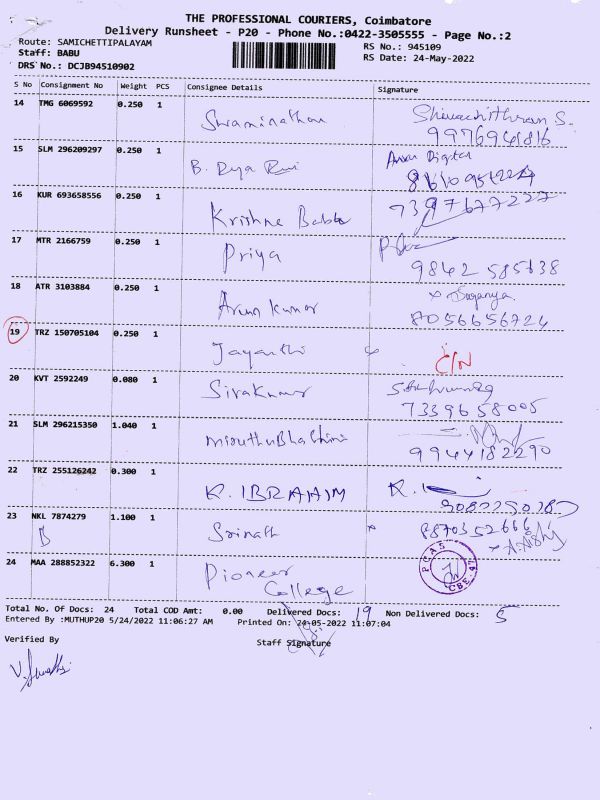 THE PROFESSIONAL COURIERS, Coimbatore
Delivery Runsheet - P20 - Phone No.:0422-3505555 - Page No.:2
Route: SAMICHETTIPALAYAM RS No.: 945109
Staff: BABU RS Date: 24-May-2022
DRS No.: DCJB94510902
S No Consignment No Weight PCS Consignee Details Signature
14 TMG 6069592 0.250 1 Swaminathan
9976941816
15 SLM 296209297 0.250 1 B.
16 KUR 693658556 0.250 1 Krishna Babu 7397677227
17 MTR 2166759 0.250 1 Priya
9842 585638
18 ATR 3103884 0.250 1 Arun Kumar
8056656724
19 TRZ 150705104 0.250 1 Jayanthi C/N
20 KVT 2592249 0.080 1 Sivakumar
7339658005
21 SLM 296215350 1.040 1
9944182290
22 TRZ 255126242 0.300 1 K. IBRAHIM
23 NKL 7874279 1.100 1 Srinath 8870352666
24 MAA 288852322 6.300 1 Pioneer
College
PCAS CBE.47
Total No. Of Docs: 24 Total COD Amt: 0.00 Delivered Docs: 19 Non Delivered Docs: 5
Entered By :MUTHUP20 5/24/2022 11:06:27 AM Printed On: 24-05-2022 11:07:04
Verified By Staff Signature